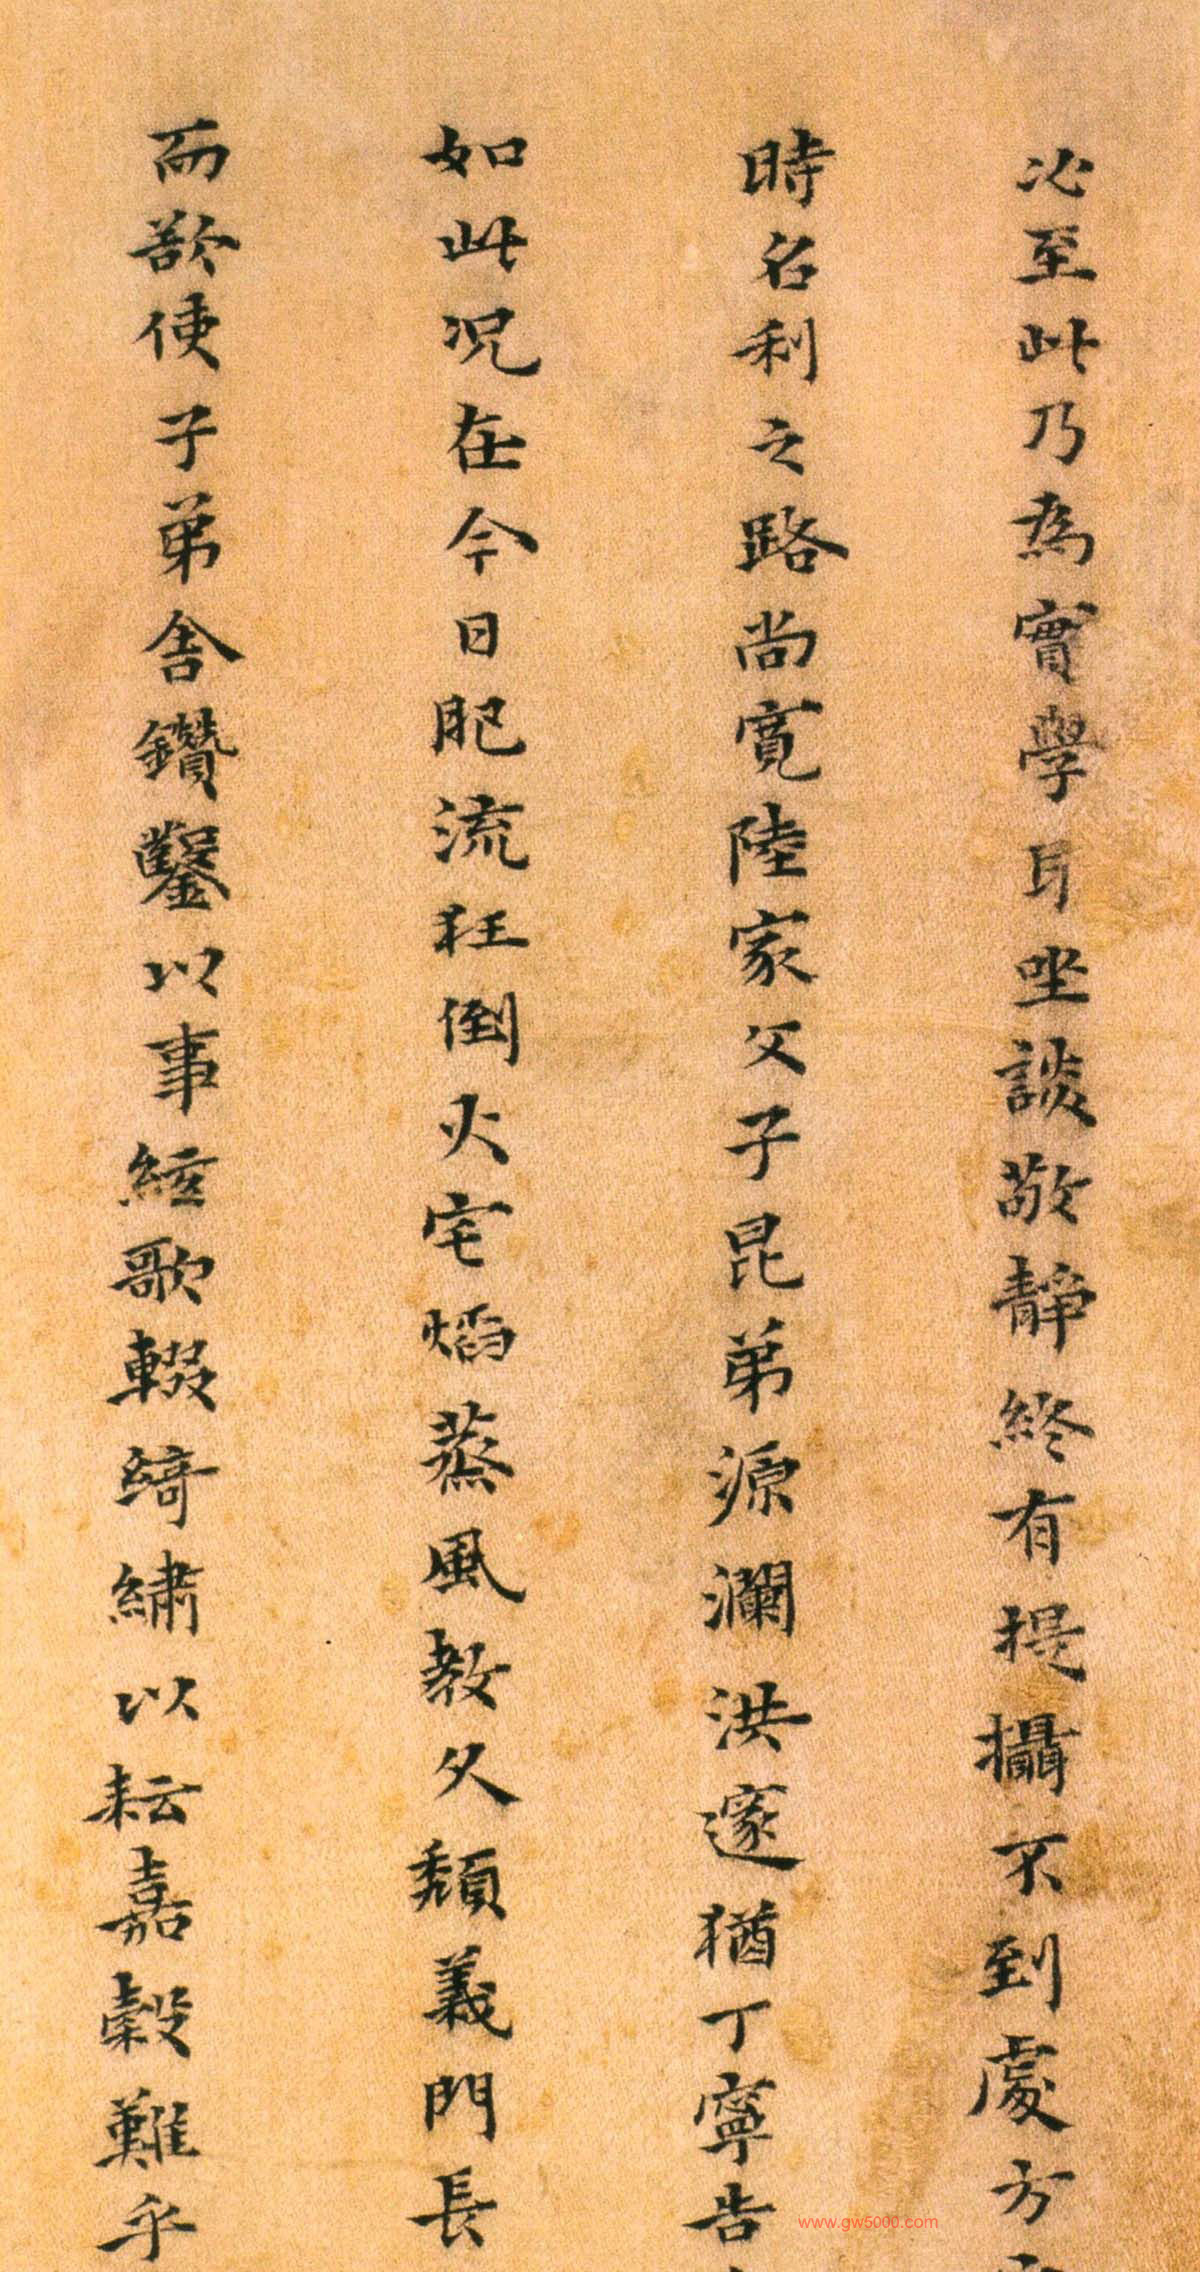 必至此乃為實學耳坐談敬靜終有提攝不到處方
時名利之路尚寬陸家父子昆弟源瀾洪邃猶丁寧告
如此况在今日肥流狂倒火宅焰蒸風教久頹義門長
而欲使子弟舍鑽鑿以事絃歌輟綺繡以耘嘉穀難乎
www.gw5000.com